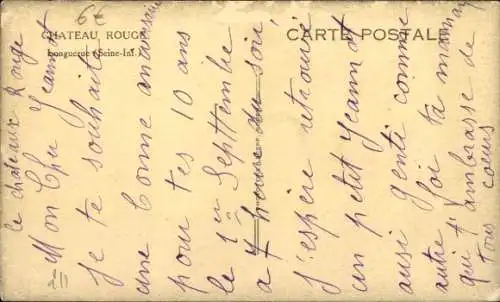 6€
CHATEAU ROUGE
Longuerue (Seine-Inf.)
CARTE POSTALE
le chateaux Rouge
Mon Cher Jeannot
Je te souhaite
une bonne aniverssaire
pour tes 10 ans
le 1er Septtembe
a 7 heure du soir
J'espère retrouvé
un petit Jeannot
ausi genti comme
autre foi ta maman
qui t'ambrasse de
tous coeurs